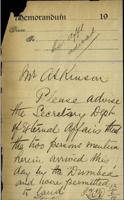 Memorandum 19
Mr Atkinson
Please advise
the Secretary Dept
of External Affairs that
the two persons mention
herein arrived this
day by the Dumbea
and were permitted
to land